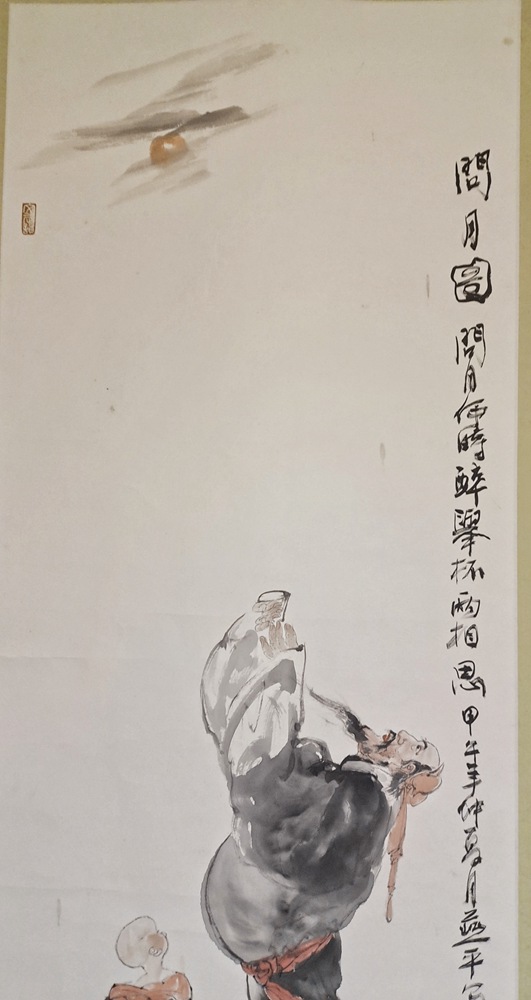 問月圖 問月何時醉舉杯兩相思 甲午年仲夏月燕平写